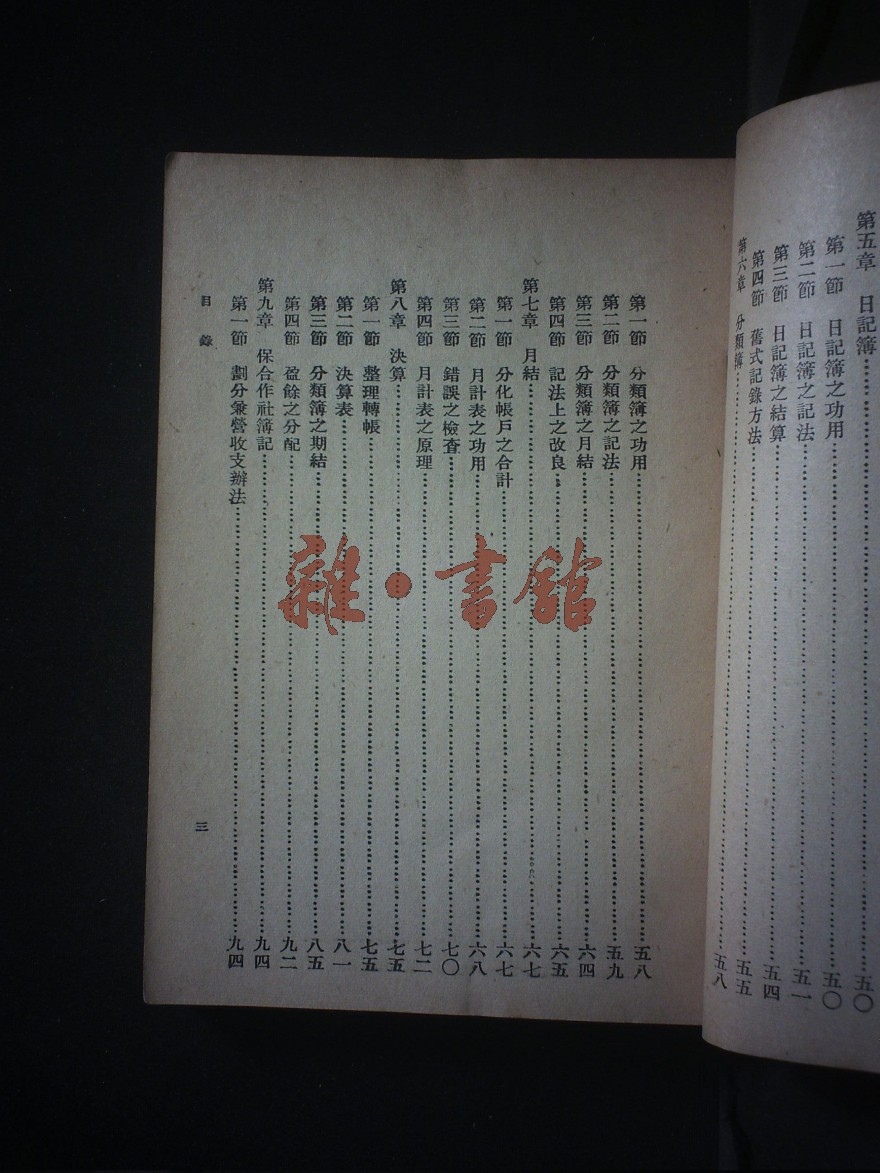 第五章 日記簿……五〇
第一節 日記簿之功用……五〇
第二節 日記簿之記法……五一
第三節 日記簿之結算……五四
第四節 舊式記錄方法……五五
第六章 分類簿……五八
第一節 分類簿之功用……五八
第二節 分類簿之記法……五九
第三節 分類簿之月結……六四
第四節 記法上之改良……六五
第七章 月結……六七
第一節 分化帳戶之合計……六七
第二節 月計表之功用……六八
第三節 錯誤之檢查……七〇
第四節 月計表之原理……七二
第八章 決算……七五
第一節 整理轉帳……七五
第二節 決算表……八一
第三節 分類簿之期結……八五
第四節 盈餘之分配……九二
第九章 保合作社簿記……九四
第一節 劃分兼營收支辦法……九四
目錄 三
雜·書館